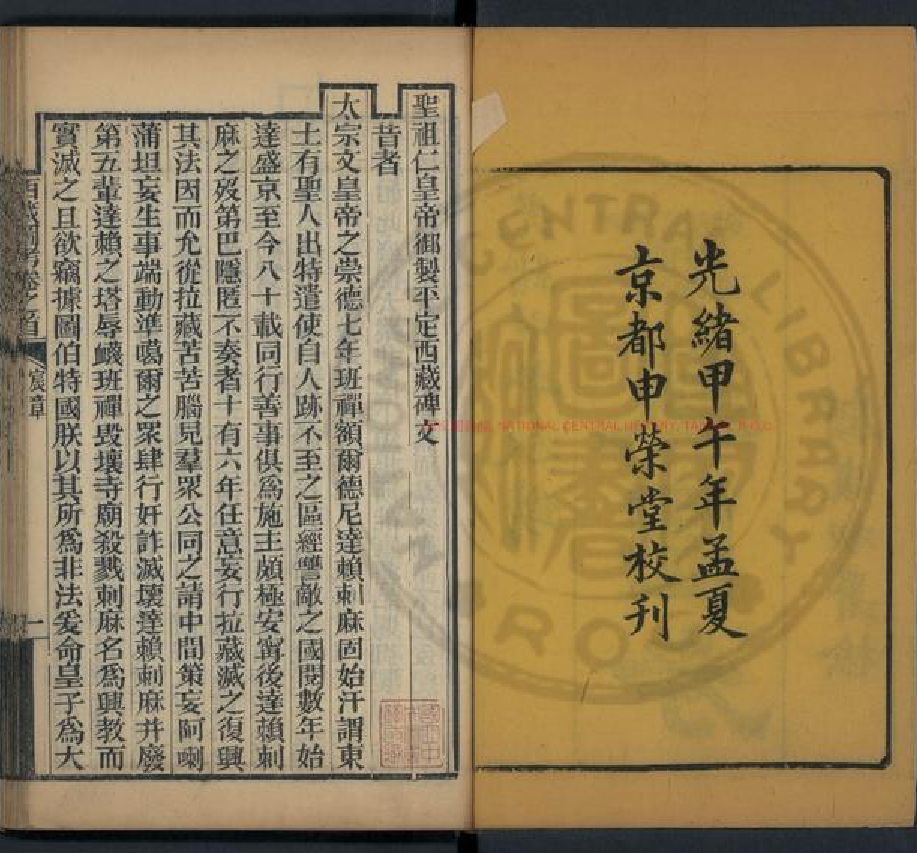 光緒甲午年孟夏
京都申榮堂校刊
聖祖仁皇帝御製平定西藏碑文
昔者
太宗文皇帝之崇德七年班禪額爾德尼達賴剌麻固始汗謂東
土有聖人出特遣使自人跡不至之區經讐敵之國閱數年始
達盛京至今八十載同行善事俱爲施主頗極安寗後達賴剌
麻之歿第巴隱匿不奏者十有六年任意妄行拉藏滅之復興
其法因而允從拉藏苦苦腦兒羣眾公同之請中間策妄阿喇
蒲坦妄生事端動準噶爾之眾肆行奸詐滅壞達賴剌麻并廢
第五輩達賴之塔辱衊班禪毀壞寺廟殺戮剌麻名爲興教而
實滅之且欲竊據圖伯特國朕以其所爲非法爰命皇子爲大
卷之首
宸章
一
NATIONAL CENTRAL LIBRARY
CENTRAL LIBRARY